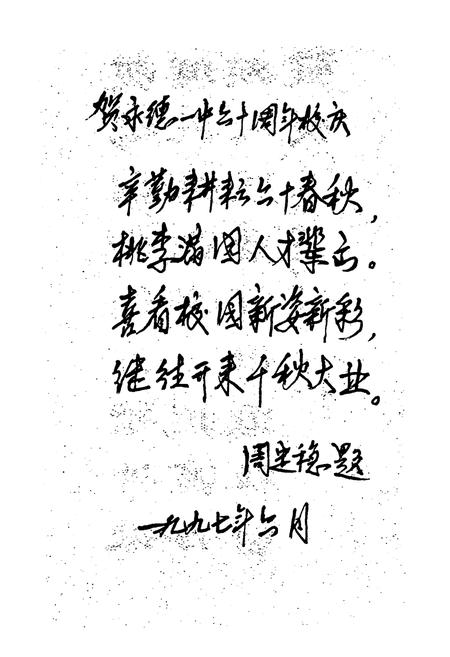 贺永德一中六十周年校庆
辛勤耕耘六十春秋,
桃李满园人才辈出。
喜看校园新姿新彩,
继往开来千秋大业。
周定稳题
一九九七年六月